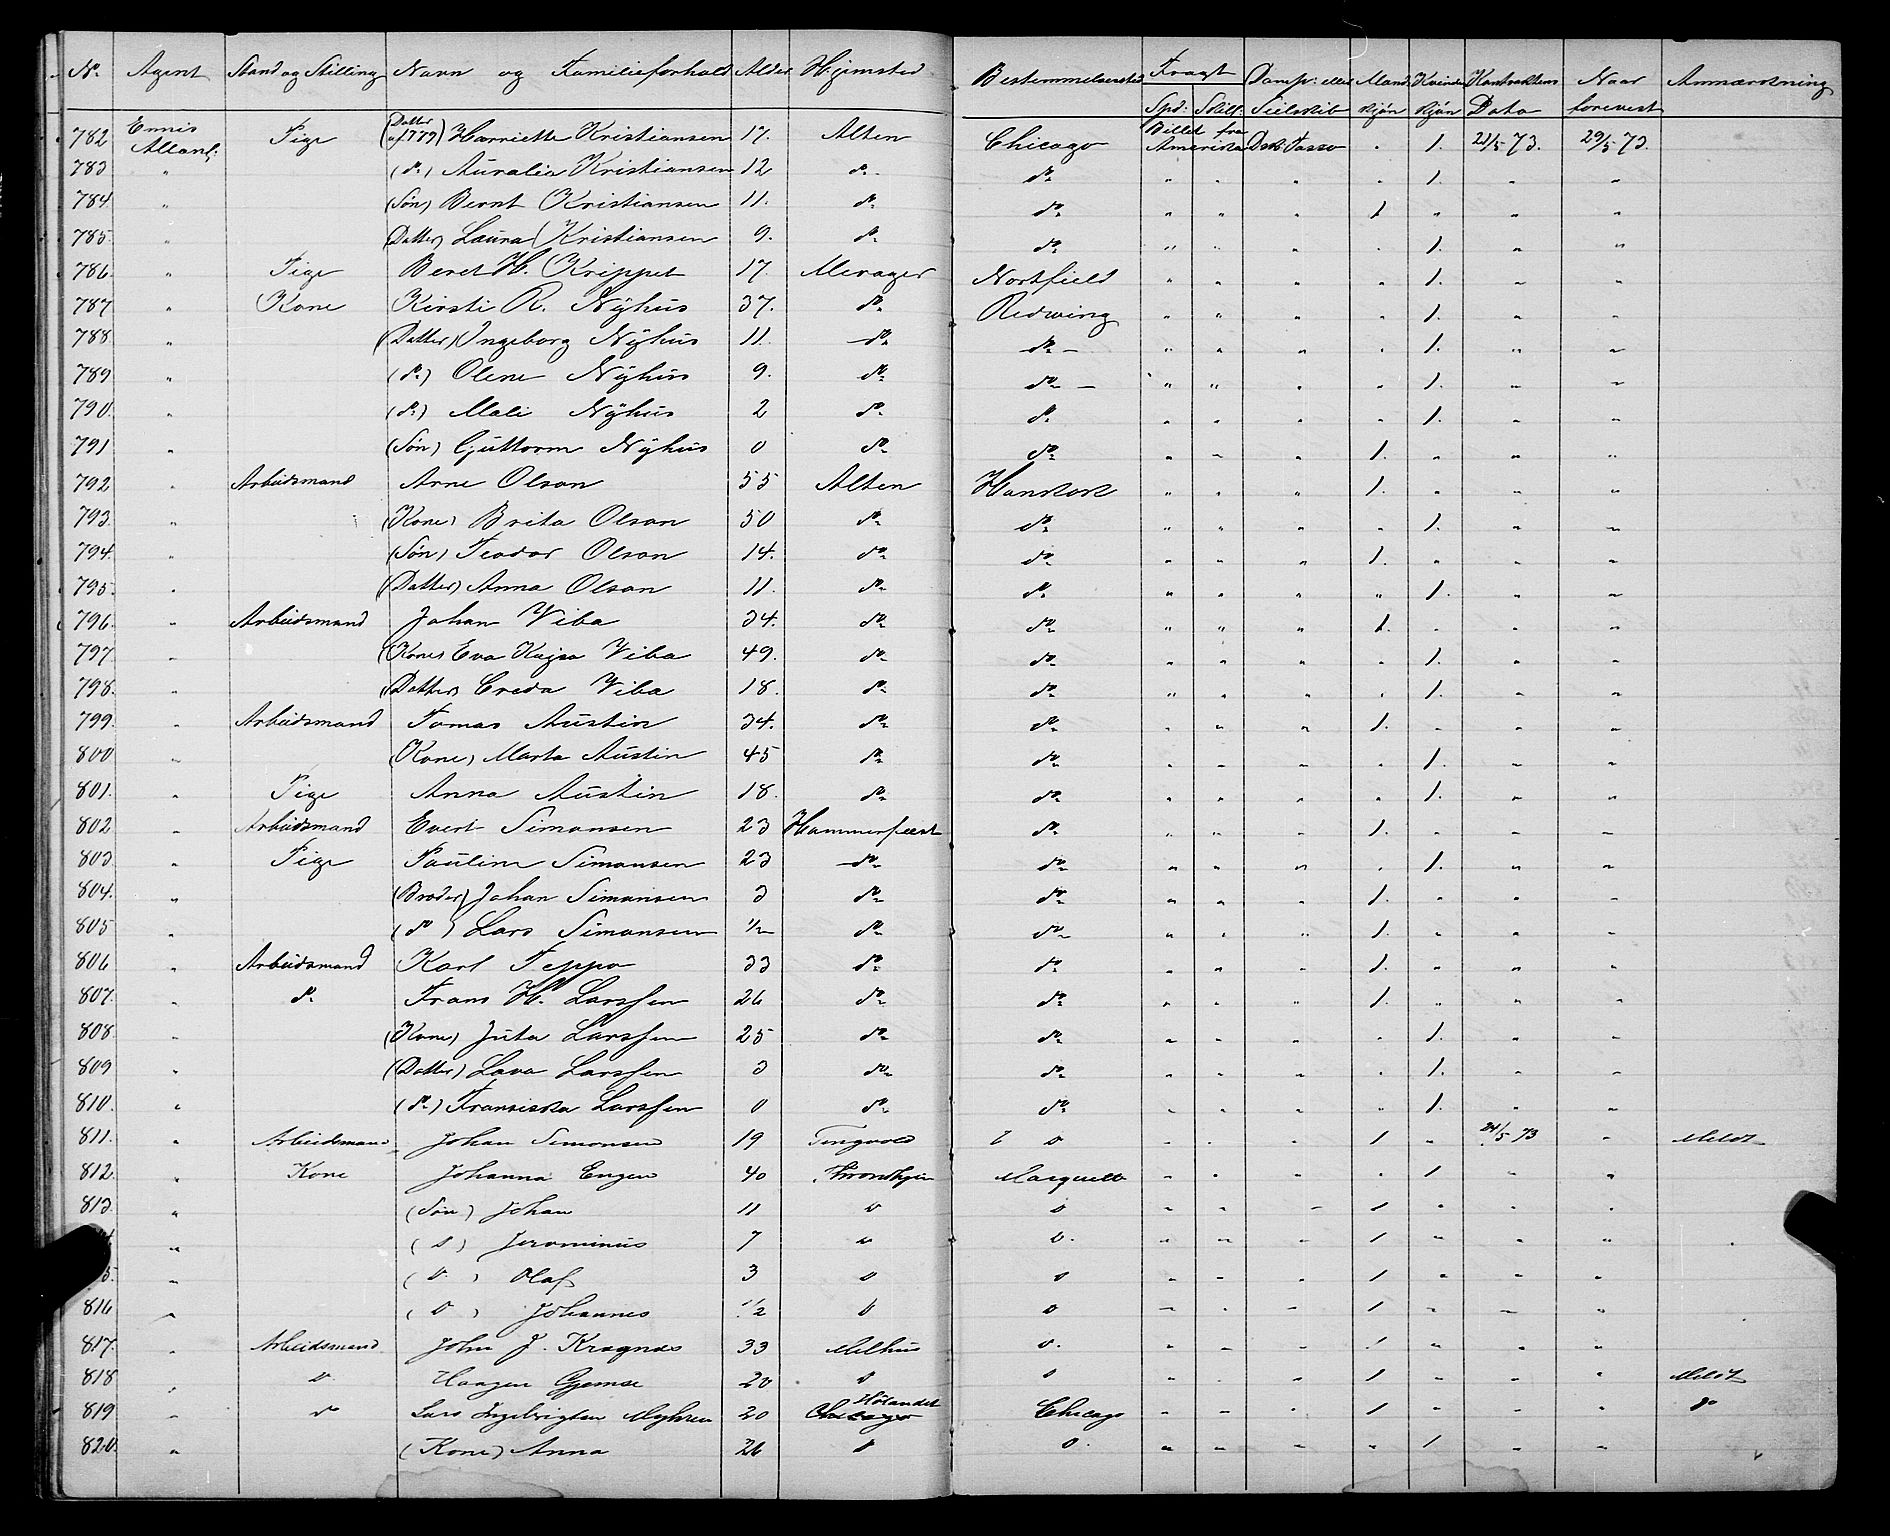 No. Agent Stand og Stilling Navn og Familieforhold Alder Hjemsted Bestemmelsessted Fragt Spd: Skill: Damp: eller Seilskib Mandkjøn Kvindekjøn Kontraktens Data Naar forevist Anmærkning
782 Ennis Allanl: Pige (Datter af 779) Harriette Kristiansen 17. Alten Chicago Billet fra Amerika Dsk Tasso " 1. 21/5 73. 29/5 73.
783 " (do) Auralia Kristiansen 12 do do " " " " 1. " "
784 " (Søn) Bernt Kristiansen 11. do do " " " 1 " " "
785 " (Datter) Laura Kristiansen 9. do do " " " " 1. " "
786 " Pige Beret H. Krippet 17. Merager Nortfield " " " " 1. " "
787 " Kone Kirsti R. Nyhus 37. do Redwing " " " " 1. " "
788 " (Datter) Ingeborg Nyhus 11. do do " " " " 1. " "
789 " (do) Olene Nyhus 9. do do " " " " 1. " "
790 " (do) Mali Nyhus 2 do do " " " " 1. " "
791 " (Søn) Guttorm Nyhus 0 do do " " " 1. " " "
792 " Arbeidsmand Arne Olson 55 Alten Hankok " " " 1. " " "
793 " (Kone) Brita Olson 50 do do " " " " 1. " "
794 " (Søn) Teodor Olson 14. do do " " " 1. " " "
795 " (Datter) Anna Olson 11. do do " " " " 1. " "
796 " Arbeidsmand Johan Viba 34. do do " " " 1. " " "
797 " (Kone) Eva Kajsa Viba 49. do do " " " " 1. " "
798. " (Datter) Creda Viba 18. do do " " " " 1. " "
799 " Arbeidsmand Tomas Austin 34. do do " " " 1. " " "
800 " (Kone) Marta Austin 45 do do " " " " 1. " "
801. " Pige Anna Austin 18. do do " " " " 1. " "
802 " Arbeidsmand Evert Simonsen 23 Hammerfest do " " " 1. " " "
803 " Pige Pauline Simonsen 23 do do " " " " 1. " "
804. " (Broder) Johan Simonsen 3 do do " " " 1. " " "
805 " (do) Lars Simonsen 1/2 do do " " " 1. " " "
806 " Arbeidsmand Karl Teppo 33 do do " " " 1. " " "
807. " do Frans H. Larssen 26 do do " " " 1. " " "
808. " (Kone) Juta Larssen 25 do do " " " " 1. " "
809 " (Datter) Lava Larssen 3 do do " " " " 1. " "
810. " (do) Fransiska Larssen 0 do do " " " " 1. " "
811. " Arbeidsmand Johan Simonsen 19 Tingvold do " " " 1 " 24/5 73 " Meldt
812. " Kone Johanna Engen 40 Throndhjem Marquette " " " " 1 " "
813. " (Søn) Johan 11 do do " " " 1 " " "
" (do) Jerominus 7 do do " " " 1 " " "
5. " (do) Olaf 3 do do " " " 1 " " "
816 " (do) Johannes 1/2 do do " " " 1 " " "
817. " Arbeidsmand John J. Kragnæs 33 Melhus do " " " 1 " " "
818 " do Haagen Gjemse 20 do do " " " 1 " " " Meldt
819 " do Lars Ingebrigtsen Myhren 20 Chicago Hølandet Chicago " " " 1 " " " do
820. " (Kone) Anna 26 do do " " " " 1 " "